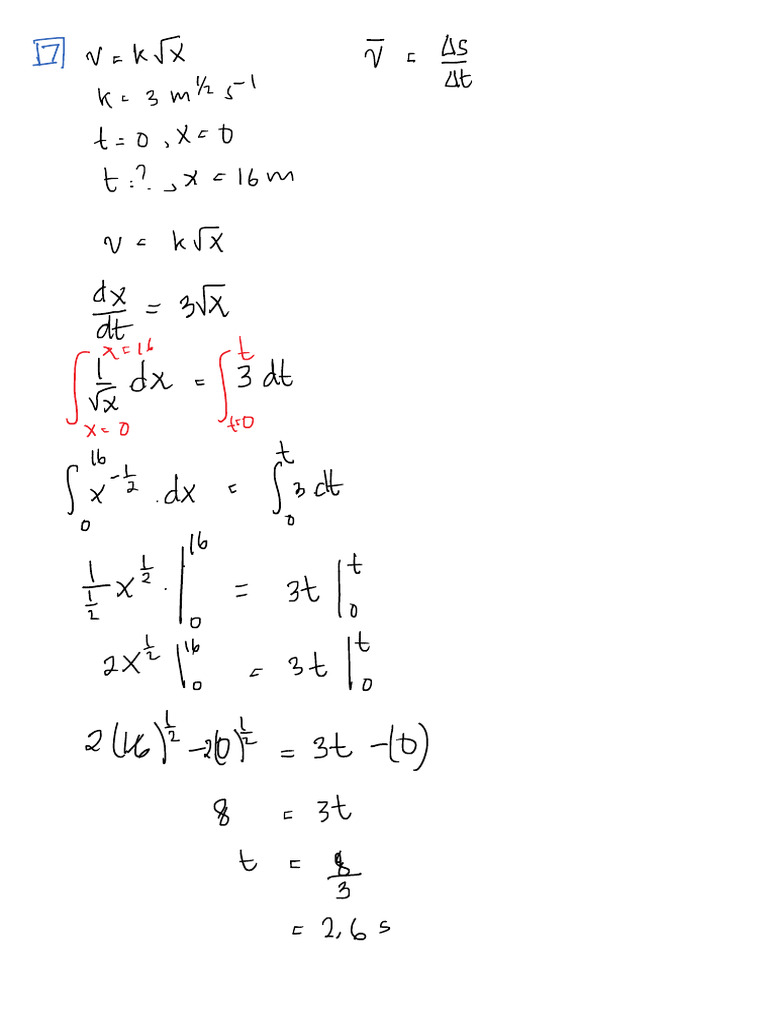 17 v = k√x        v̄ = Δs/Δt
k = 3 m^1/2 s^-1
t = 0 , x = 0
t = ? , x = 16 m
v = k√x
dx/dt = 3√x
∫_{x=0}^{x=16} 1/√x dx = ∫_{t=0}^{t} 3 dt
∫_0^16 x^{-1/2} . dx = ∫_0^t 3 dt
1/(1/2) x^{1/2} . |_0^16 = 3t |_0^t
2x^{1/2} |_0^16 = 3t |_0^t
2(16)^{1/2} - 2(0)^{1/2} = 3t - (0)
8 = 3t
t = 8/3
= 2,6 s